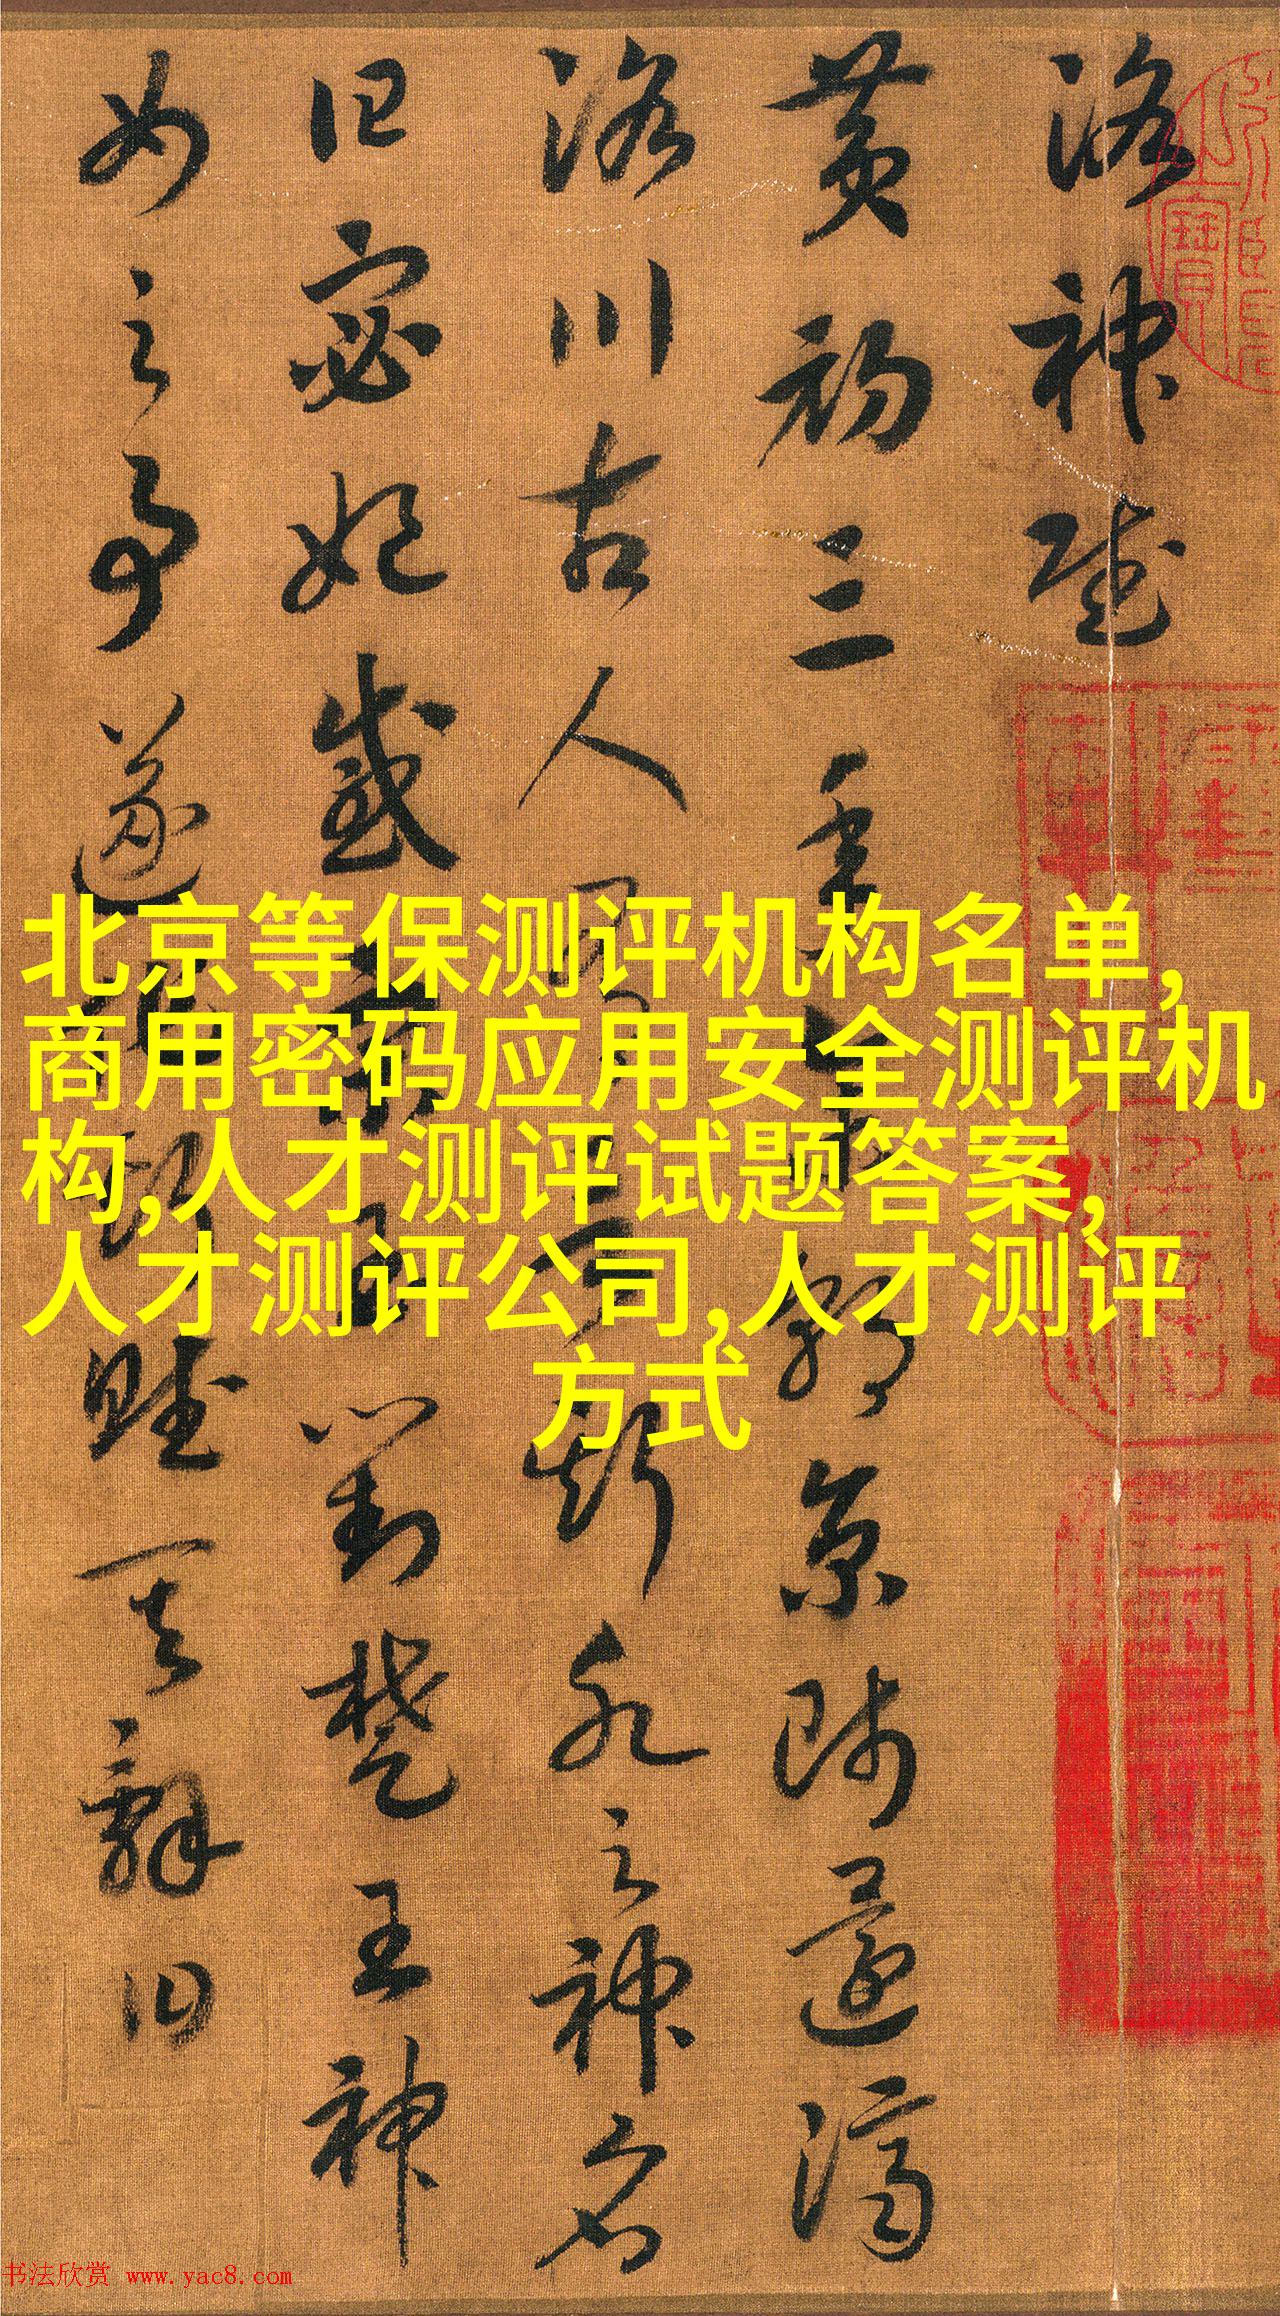 洛神賦
黄初三年朝京師還濟
洛川古人有斯水之神名
曰宓妃感宋玉對楚王神
女之事遂賦其辭曰
北京等保测评机构名单,
商用密码应用安全测评机
构,人才测评试题答案,
人才测评公司,人才测评
方式
书法欣赏 www.yac8.com